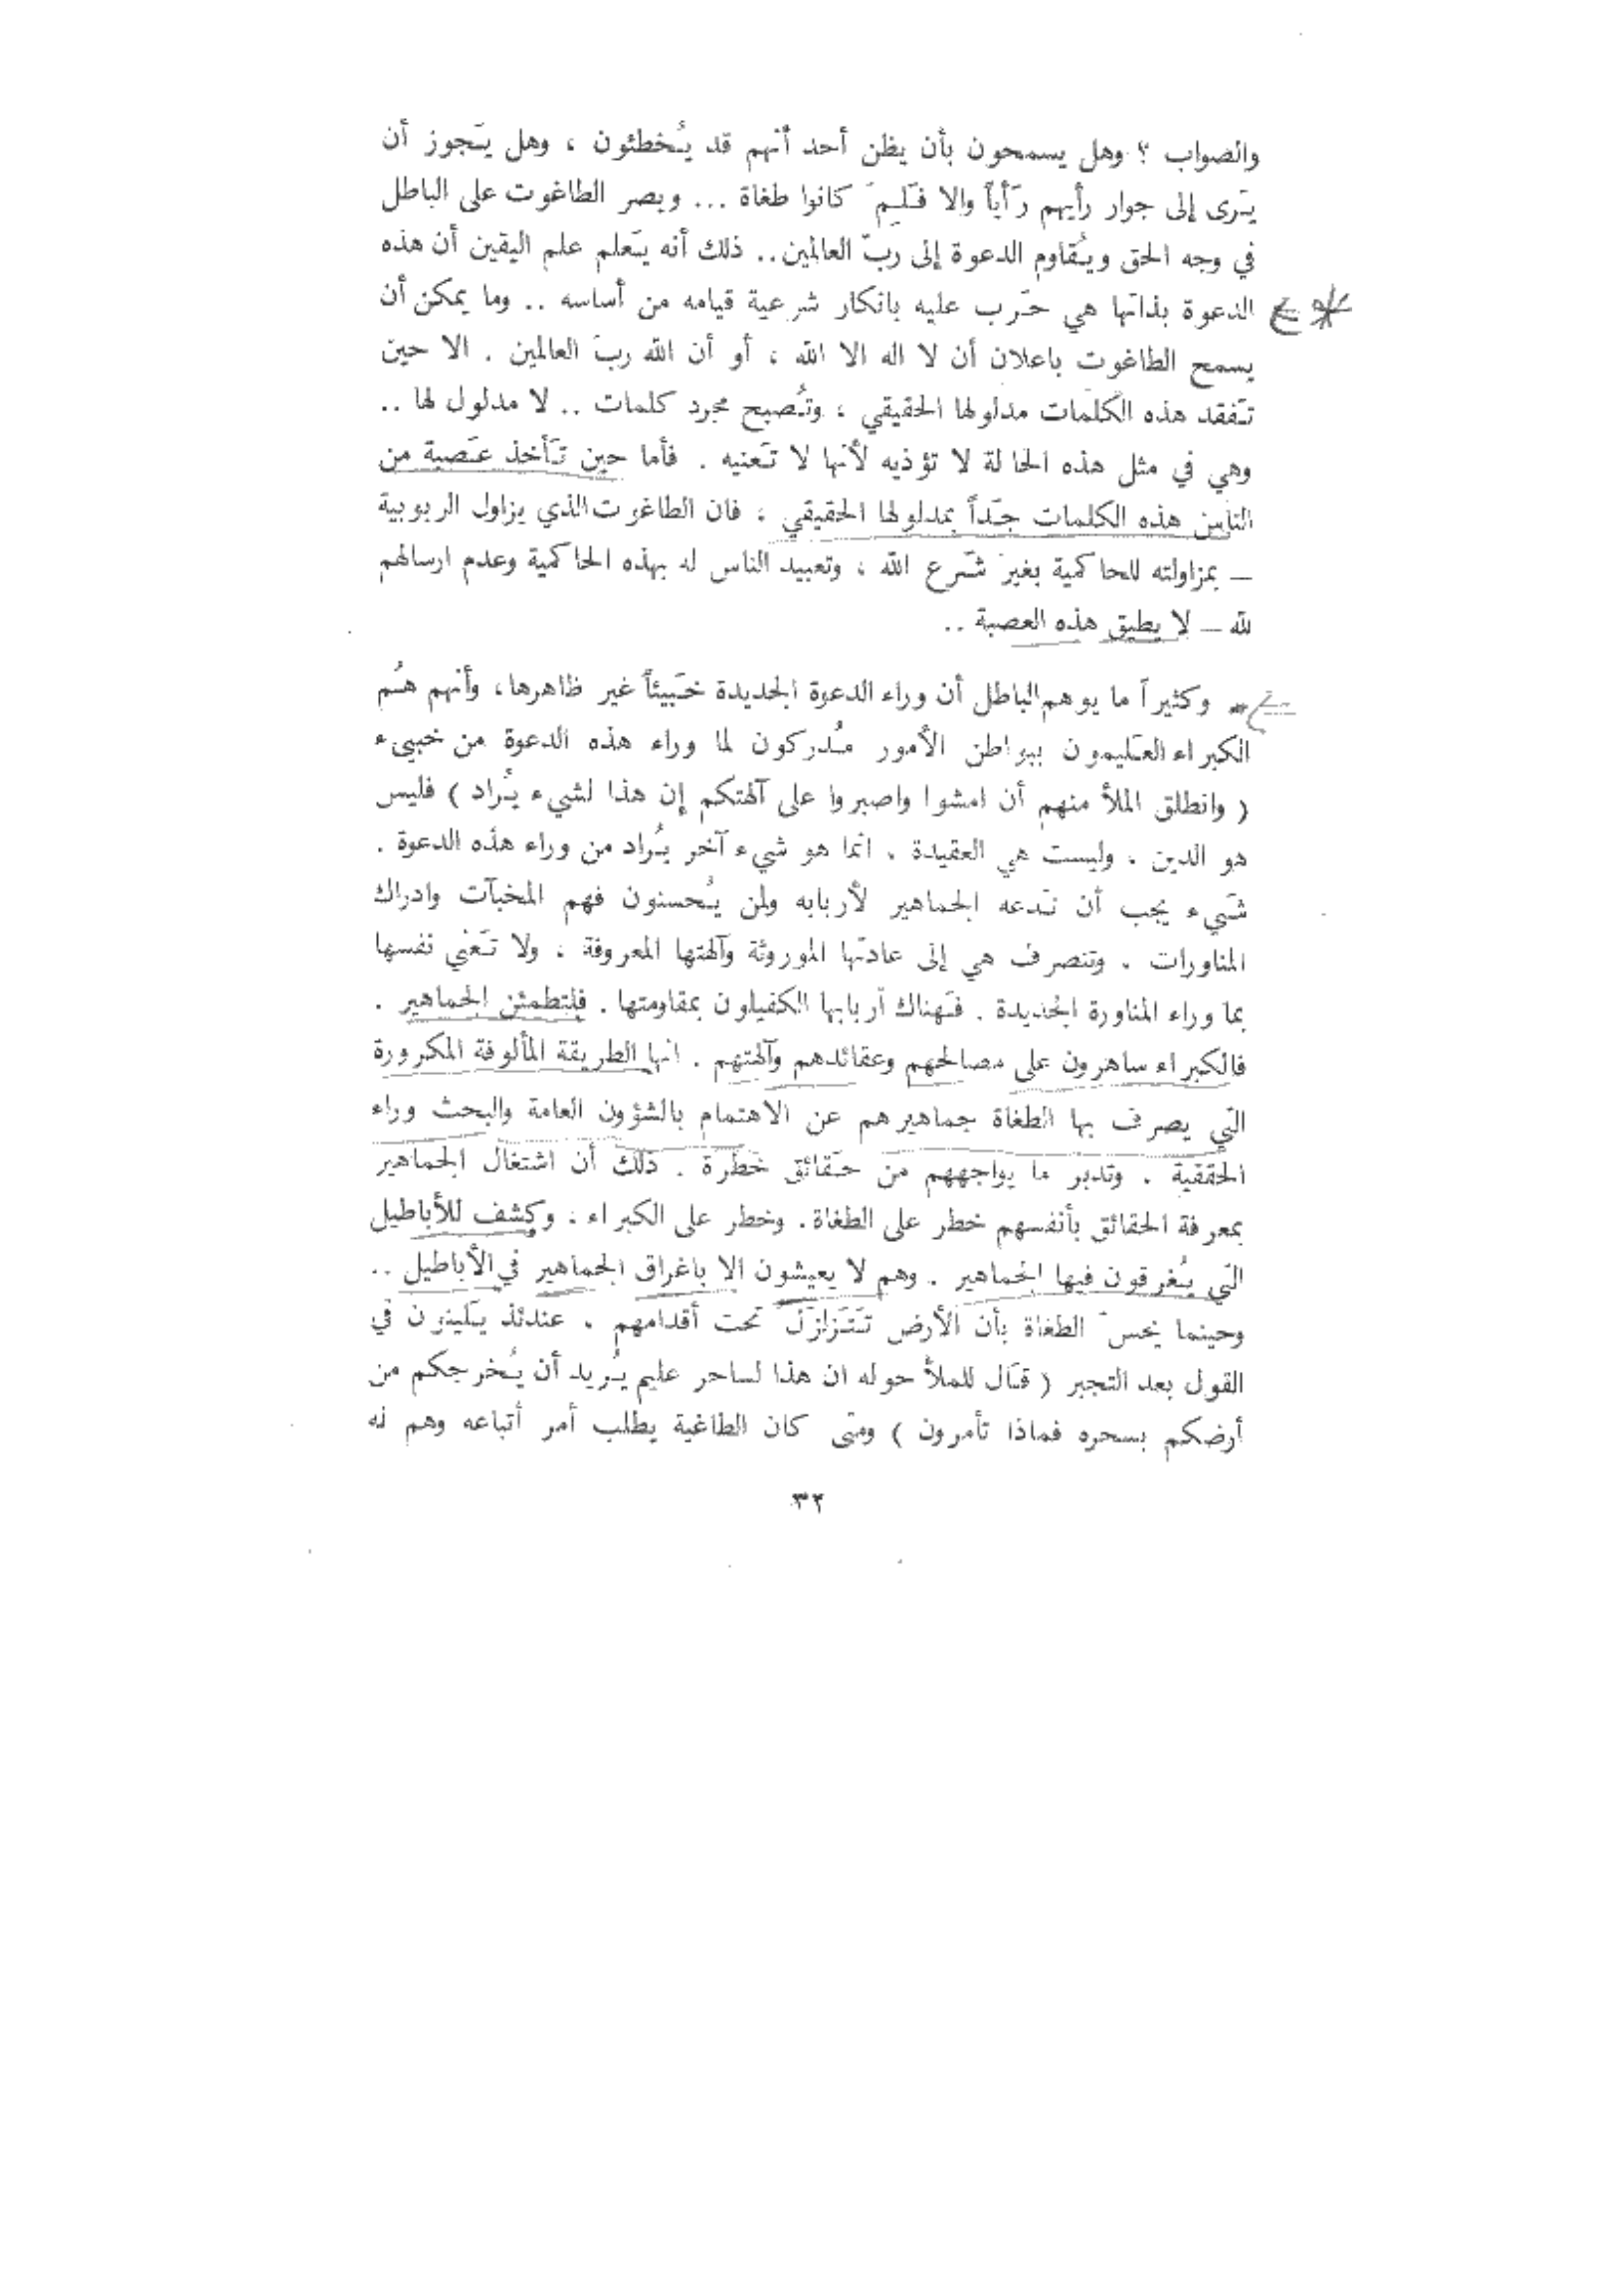 والصواب ؟ وهل يسمحون بأن يظن أحد أنهم قد يُخطئون ، وهل يَجوز أن
يَرى إلى جوار رأيهم رَأياً والا فَلِمَ كانوا طغاة ... ويصر الطاغوت على الباطل
في وجه الحق ويُقاوم الدعوة إلى ربّ العالمين.. ذلك أنه يَعلم علم اليقين أن هذه
الدعوة بذاتها هي حَرب عليه بانكار شرعية قيامه من أساسه .. وما يمكن أن
يسمح الطاغوت باعلان أن لا اله الا الله ، أو أن الله ربّ العالمين . الا حين
تَفقد هذه الكلمات مدلولها الحقيقي ، وتُصبح مجرد كلمات .. لا مدلول لها ..
وهي في مثل هذه الحالة لا تؤذيه لأنها لا تَعنيه . فأما حين تَأخذ عَصبة من
الناس هذه الكلمات جَداً بمدلولها الحقيقي ، فان الطاغوت الذي يزاول الربوبية
— بمزاولته للحاكمية بغير شَرع الله ، وتعبيد الناس له بهذه الحاكمية وعدم ارسالهم
لله — لا يطيق هذه العصبة ..
وكثيراً ما يوهم الباطل أن وراء الدعوة الجديدة خَبيئاً غير ظاهرها، وأنهم هُم
الكبراء العَليمون ببواطن الأمور مُدركون لما وراء هذه الدعوة من خبيء
( وانطلق الملأ منهم أن امشوا واصبروا على آلهتكم إن هذا لشيء يُراد ) فليس
هو الدين ، وليست هي العقيدة ، انما هو شيء آخر يُراد من وراء هذه الدعوة .
شَيء يجب أن تَدعه الجماهير لأربابه ولمن يُحسنون فهم المخبآت وادراك
المناورات . وتنصرف هي إلى عادتها الموروثة وآلهتها المعروفة ، ولا تَعني نفسها
بما وراء المناورة الجديدة . فَهناك أربابها الكفيلون بمقاومتها . فلتطمئن الجماهير .
فالكبراء ساهرون على مصالحهم وعقائدهم وآلهتهم . انها الطريقة المألوفة المكرورة
التي يصرف بها الطغاة جماهيرهم عن الاهتمام بالشؤون العامة والبحث وراء
الحققية . وتدبر ما يواجههم من حَقائق خَطرة . ذلك أن اشتغال الجماهير
بمعرفة الحقائق بأنفسهم خطر على الطغاة. وخطر على الكبراء ، وكشف للأباطيل
التي يُغرقون فيها الجماهير . وهم لا يعيشون الا باغراق الجماهير في الأباطيل ..
وحينما يحسّ الطغاة بأن الأرض تَتَزلزَل تحت أقدامهم . عندئذ يَلينون في
القول بعد التجبر ( قَال للملأ حوله ان هذا لساحر عليم يُريد أن يُخرجكم من
أرضكم بسحره فماذا تأمرون ) ومتى كان الطاغية يطلب أمر أتباعه وهم له
٣٢